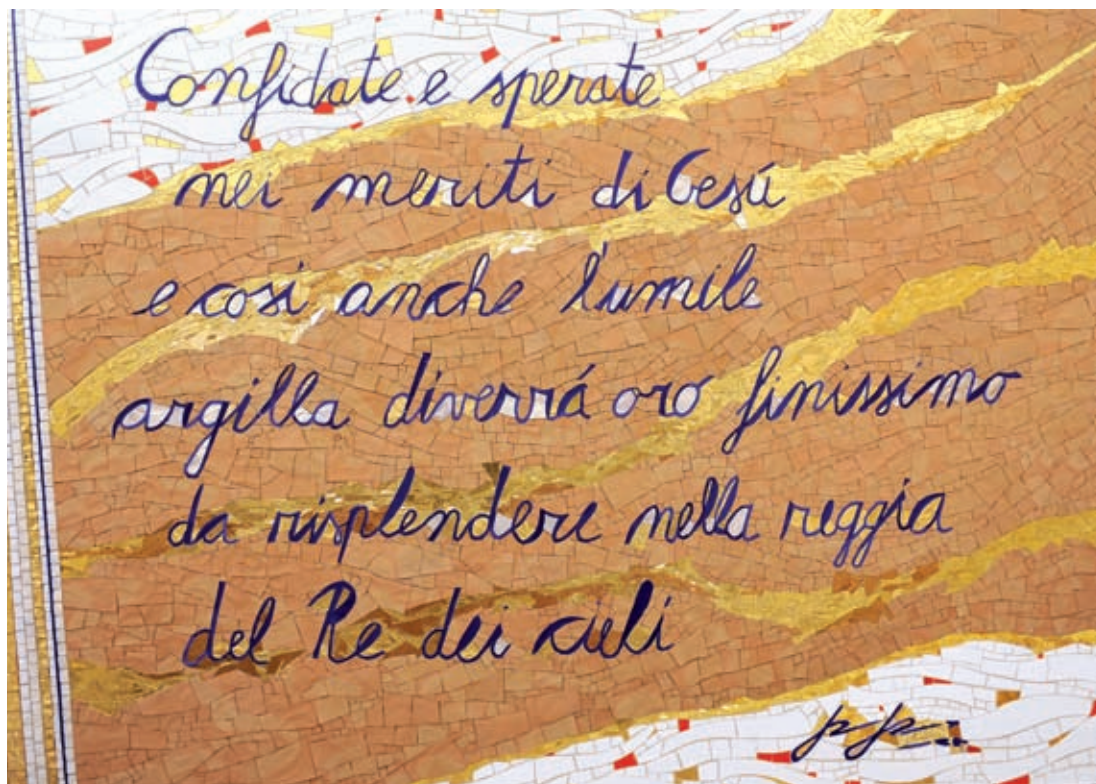 Confidate e sperate
nei meriti di Gesú
e cosí anche l'umile
argilla diverrá oro finissimo
da risplendere nella reggia
del Re dei cieli